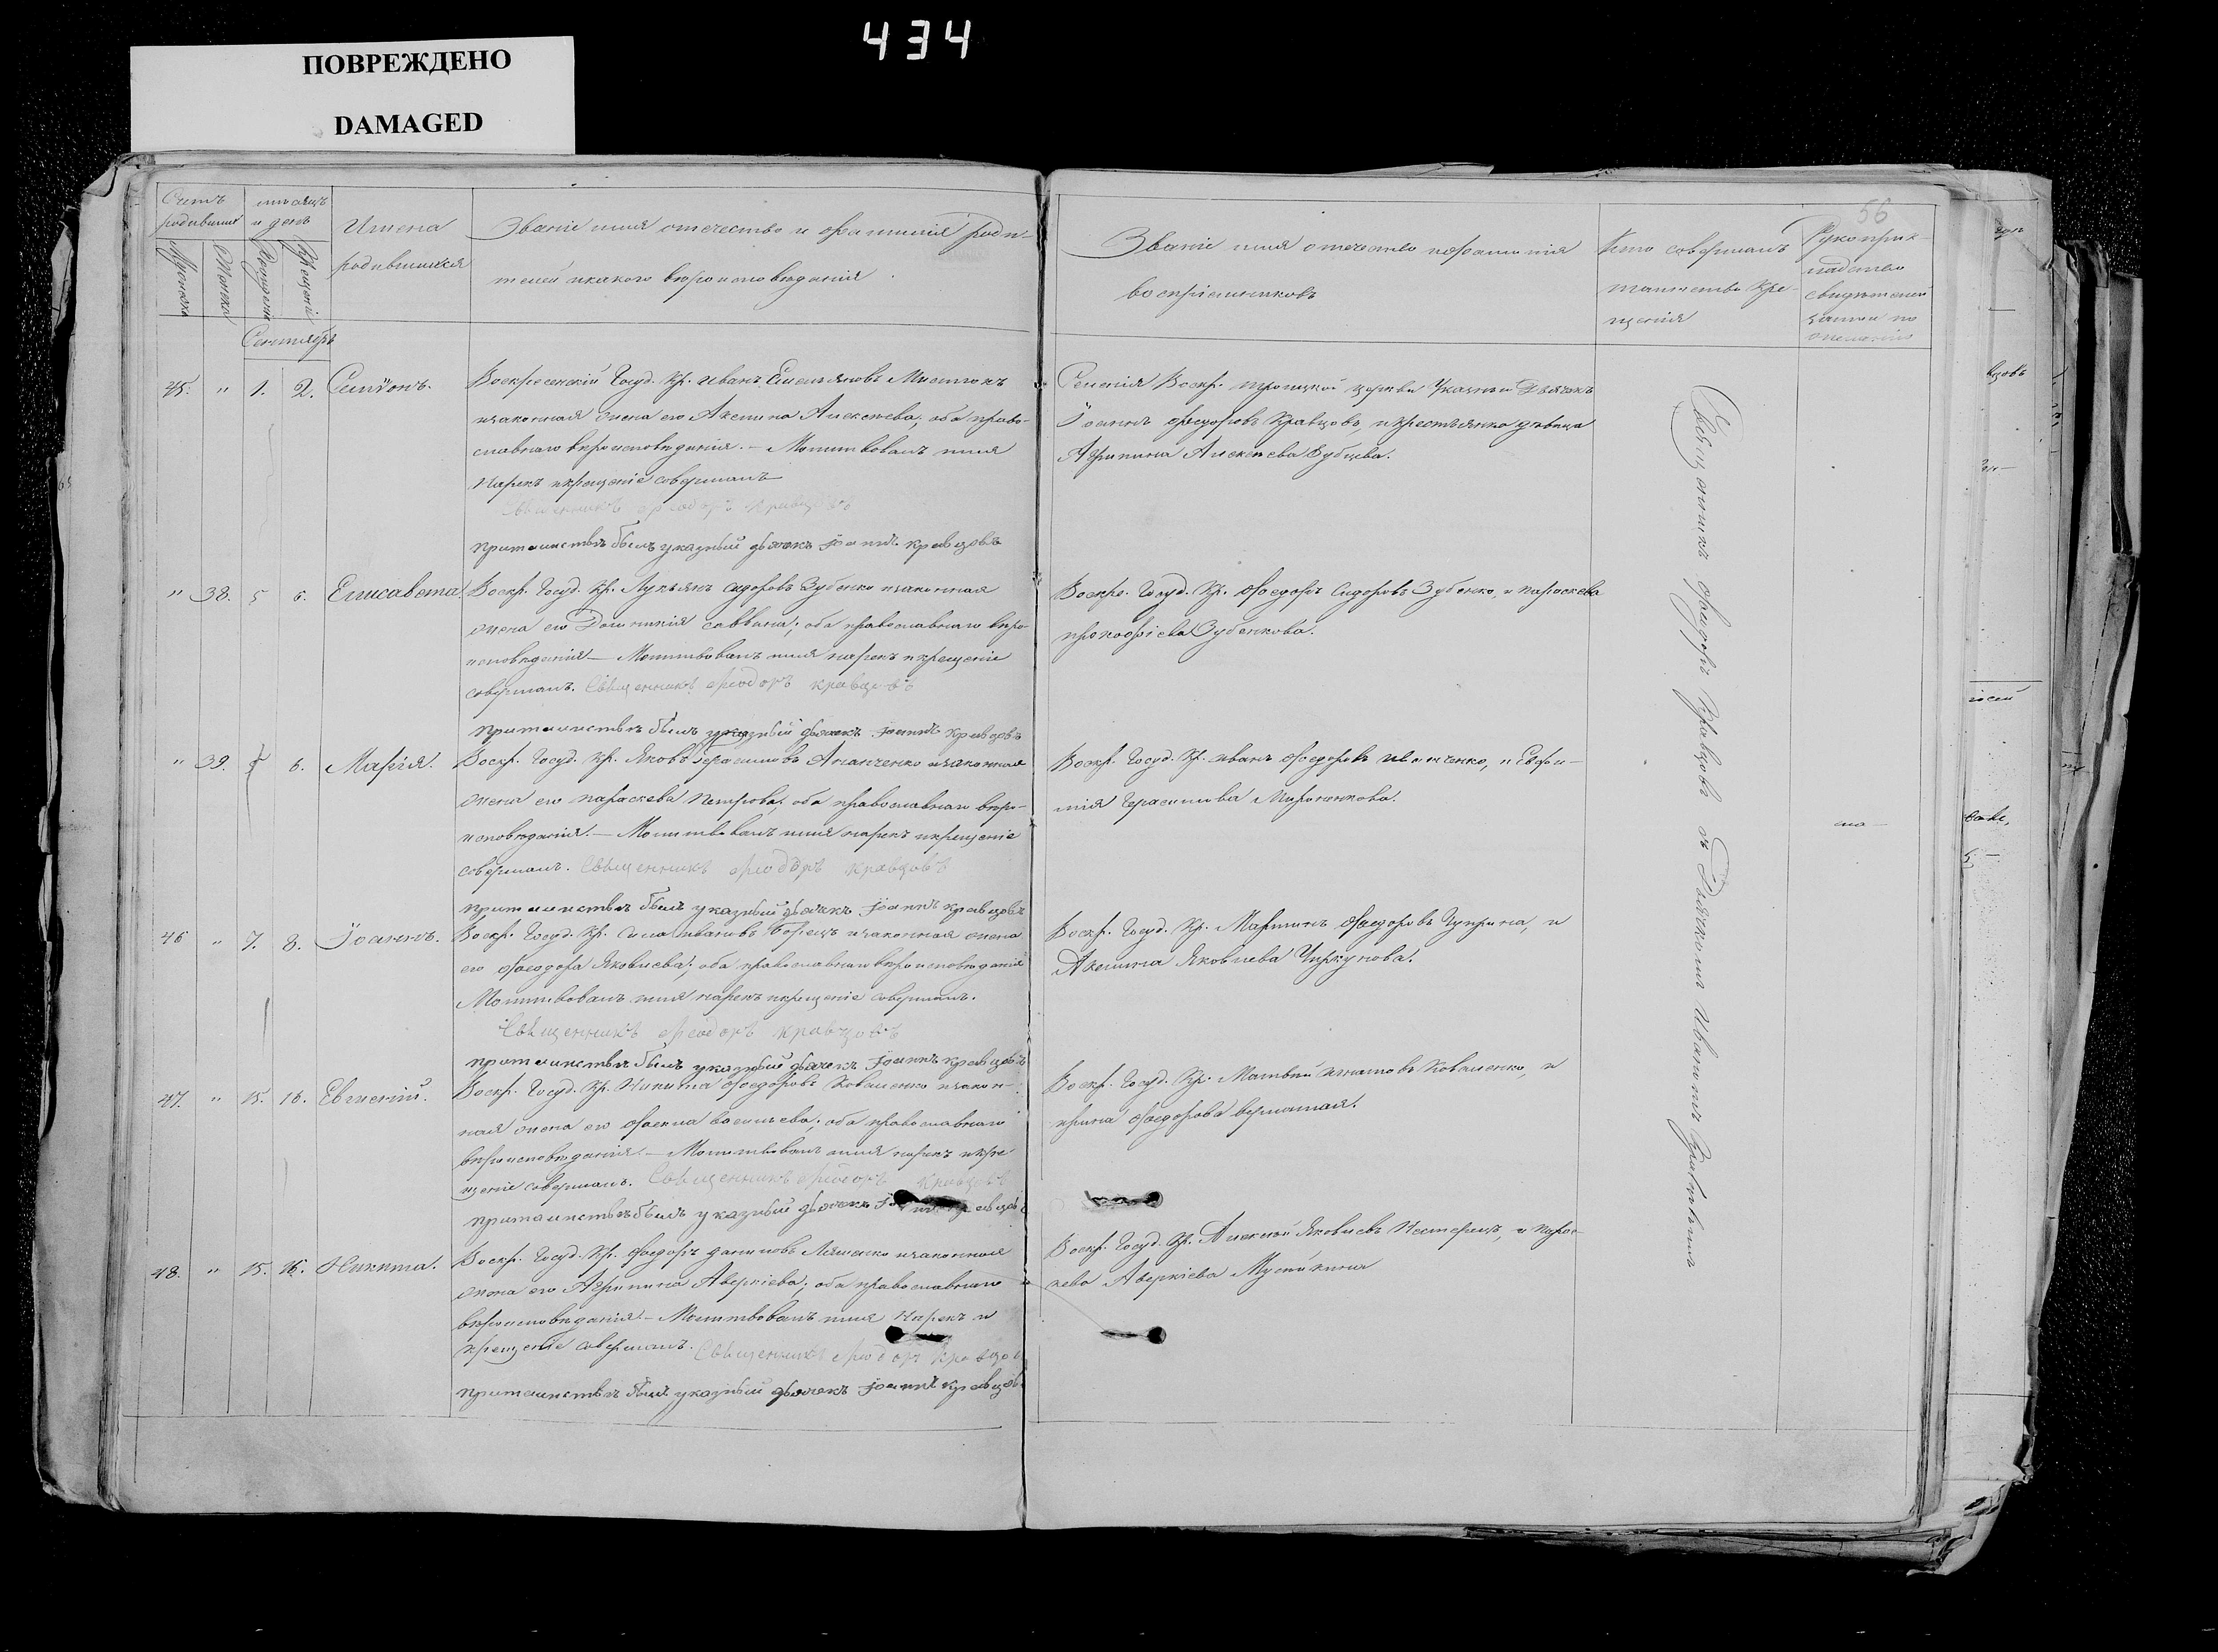 434
ПОВРЕЖДЕНО
DAMAGED
56
Счетъ родившихся
мѣсяцъ и день
Имена
родившихся
Званіе имя отечество и фамилія роди-
телей и какого вѣроисповѣданія
Званіе имя отечество и фамилія
воспріемниковъ
Кто совершалъ
таинство кре-
щенія
Рукоприк-
ладство
свидѣтелей
записи по
желанію
Мужеска
Женска
Рожденія
Крещенія
Сентябрь
45. " 1. 2. Симѵонъ.
Воскресенскій Госуд. Кр. Иванъ Емельяновъ
и законная жена его Акелина Алексѣева, оба право-
славнаго вѣроисповѣданія. — Молитвовалъ имя
нарекъ и крещеніе совершалъ
Священникъ Ѳеодоръ Кравцовъ
при таинствѣ былъ указный дьячекъ Іоаннъ Кравцовъ
Селенія Воскр. Троицкой церкви Указный Дьячекъ
Іоаннъ Ѳеодоровъ Кравцовъ, и крестьянка дѣвица
Агрипина Алексѣева Зубцева.
" 38. 5 6. Елисавета.
Воскр. Госуд. Кр. Лукьянъ Сидоровъ Зубенко и законная
жена его Домникія Саввина, оба православнаго вѣро-
исповѣданія — Молитвовалъ имя нарекъ и крещеніе
совершалъ. Священникъ Ѳеодоръ Кравцовъ
при таинствѣ былъ указный дьячекъ Іоаннъ Кравцовъ
Воскр. Госуд. Кр. Ѳеодоръ Сидоровъ Зубенко, и Параскева
Прокофіева Зубенкова.
" 39. 5 6. Марія.
Воскр. Госуд. Кр. Яковъ Герасимовъ Ананченко и законная
жена его Параскева Петрова, оба православнаго вѣро-
исповѣданія. — Молитвовалъ имя нарекъ и крещеніе
совершалъ. Священникъ Ѳеодоръ Кравцовъ
при таинствѣ былъ указный дьячекъ Іоаннъ Кравцовъ
Воскр. Госуд. Кр. Иванъ Ѳеодоровъ, и Евфи-
мія Герасимова Мироненкова.
46 " 7. 8. Іоаннъ.
Воскр. Госуд. Кр. Сила Ивановъ Борецъ и законная жена
его Ѳеодора Яковлева, оба православнаго вѣроисповѣданія
Молитвовалъ имя нарекъ и крещеніе совершалъ.
Священникъ Ѳеодоръ Кравцовъ
при таинствѣ былъ указный дьячекъ Іоаннъ Кравцовъ
Воскр. Госуд. Кр. Мартинъ Ѳеодоровъ Чуприна, и
Акелина Яковлева Чиркунова.
47. " 15. 16. Евмений.
Воскр. Госуд. Кр. Никита Ѳеодоровъ Коваленко и закон-
ная жена его Ѳекла Васильева, оба православнаго
вѣроисповѣданія. — Молитвовалъ имя нарекъ и кре-
щеніе совершалъ. Священникъ Ѳеодоръ Кравцовъ
при таинствѣ былъ указный дьячекъ Іоаннъ Кравцовъ
Воскр. Госуд. Кр. Матвей Игнатовъ Коваленко, и
Ирина Ѳеодорова
48. " 15. 16. Никита.
Воскр. Госуд. Кр. Ѳеодоръ Даниловъ Ляшенко и законная
жена его Агрипина Аверкіева, оба православнаго
вѣроисповѣданія. — Молитвовалъ имя Нарекъ и
крещеніе совершалъ. Священникъ Ѳеодоръ Кравцовъ
при таинствѣ былъ указный дьячекъ Іоаннъ Кравцовъ
Воскр. Госуд. Кр. Алексѣй Яковлевъ Нестерецъ, и Парас-
кева Аверкіева
Священникъ Ѳеодоръ Кравцовъ съ Дьячкомъ Иваномъ Кравцовымъ